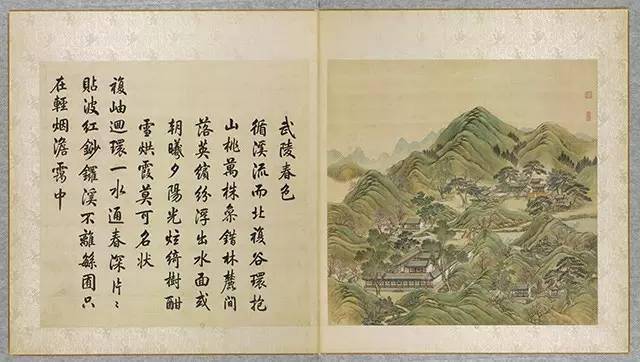 武陵春色
循溪流而北複谷環抱
山桃萬株參錯林麓間
落英繽紛浮出水面或
朝曦夕陽光炫綺樹酣
雪烘霞莫可名狀
複岫迴環一水通春深片〻
貼波紅鈔鑼溪不離繇囿只
在輕烟澹靄中